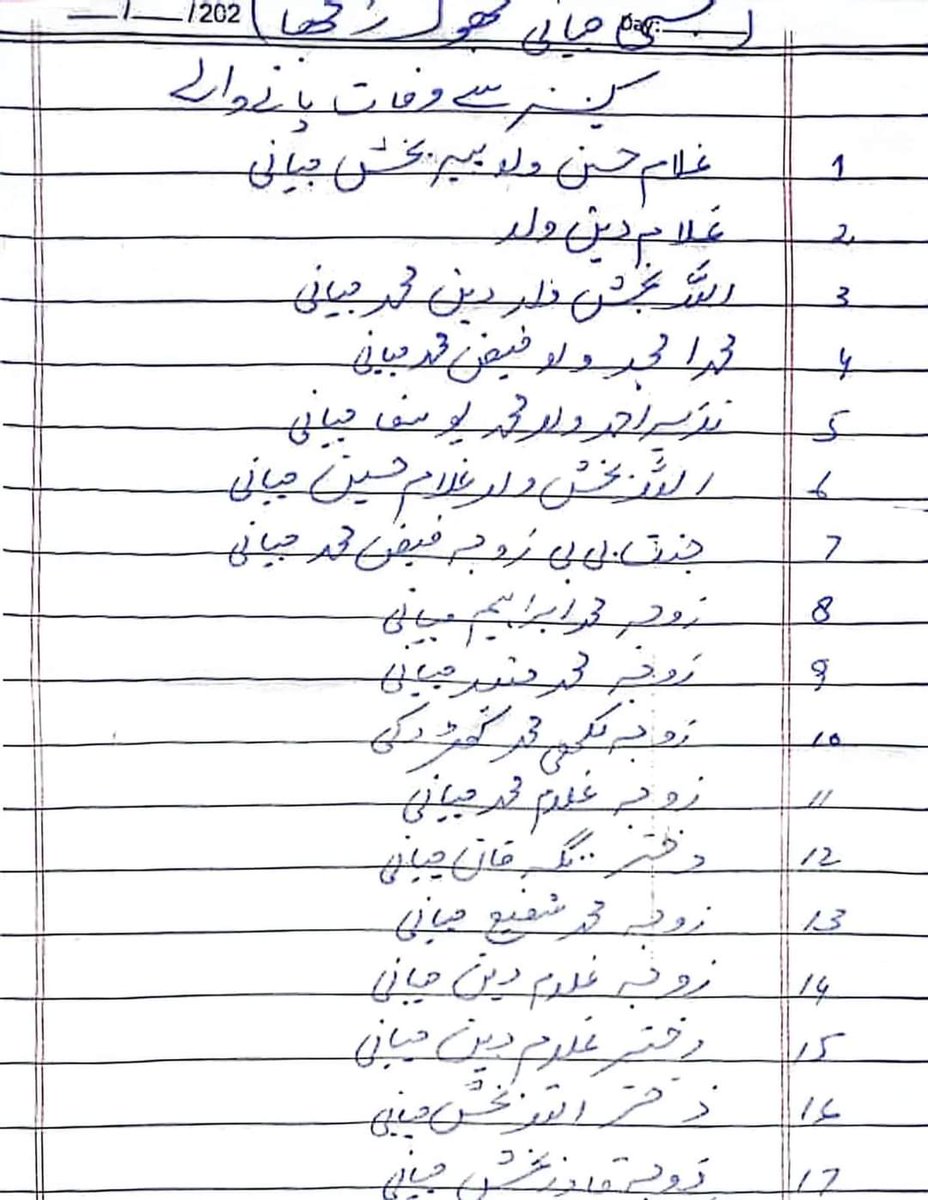 __/__/202
بستی میانی
کینسر سے وفات پانے والے
1 غلام حسن ولد پیر بخش میانی
2 غلام دین ولد
3 اللہ بخش ولد دین محمد میانی
4 محمد امجد ولد فیض محمد میانی
5 نذیر احمد ولد محمد یوسف میانی
6 اللہ بخش ولد غلام حسین میانی
7 جنت بی بی زوجہ فیض محمد میانی
8 زوجہ محمد ابراہیم میانی
9 زوجہ محمد میانی
10 زوجہ محمد
11 زوجہ غلام محمد میانی
12 دختر خان میانی
13 زوجہ محمد شفیع میانی
14 زوجہ غلام دین میانی
15 دختر غلام دین میانی
16 دختر اللہ بخش میانی
17 زوجہ قادر بخش میانی